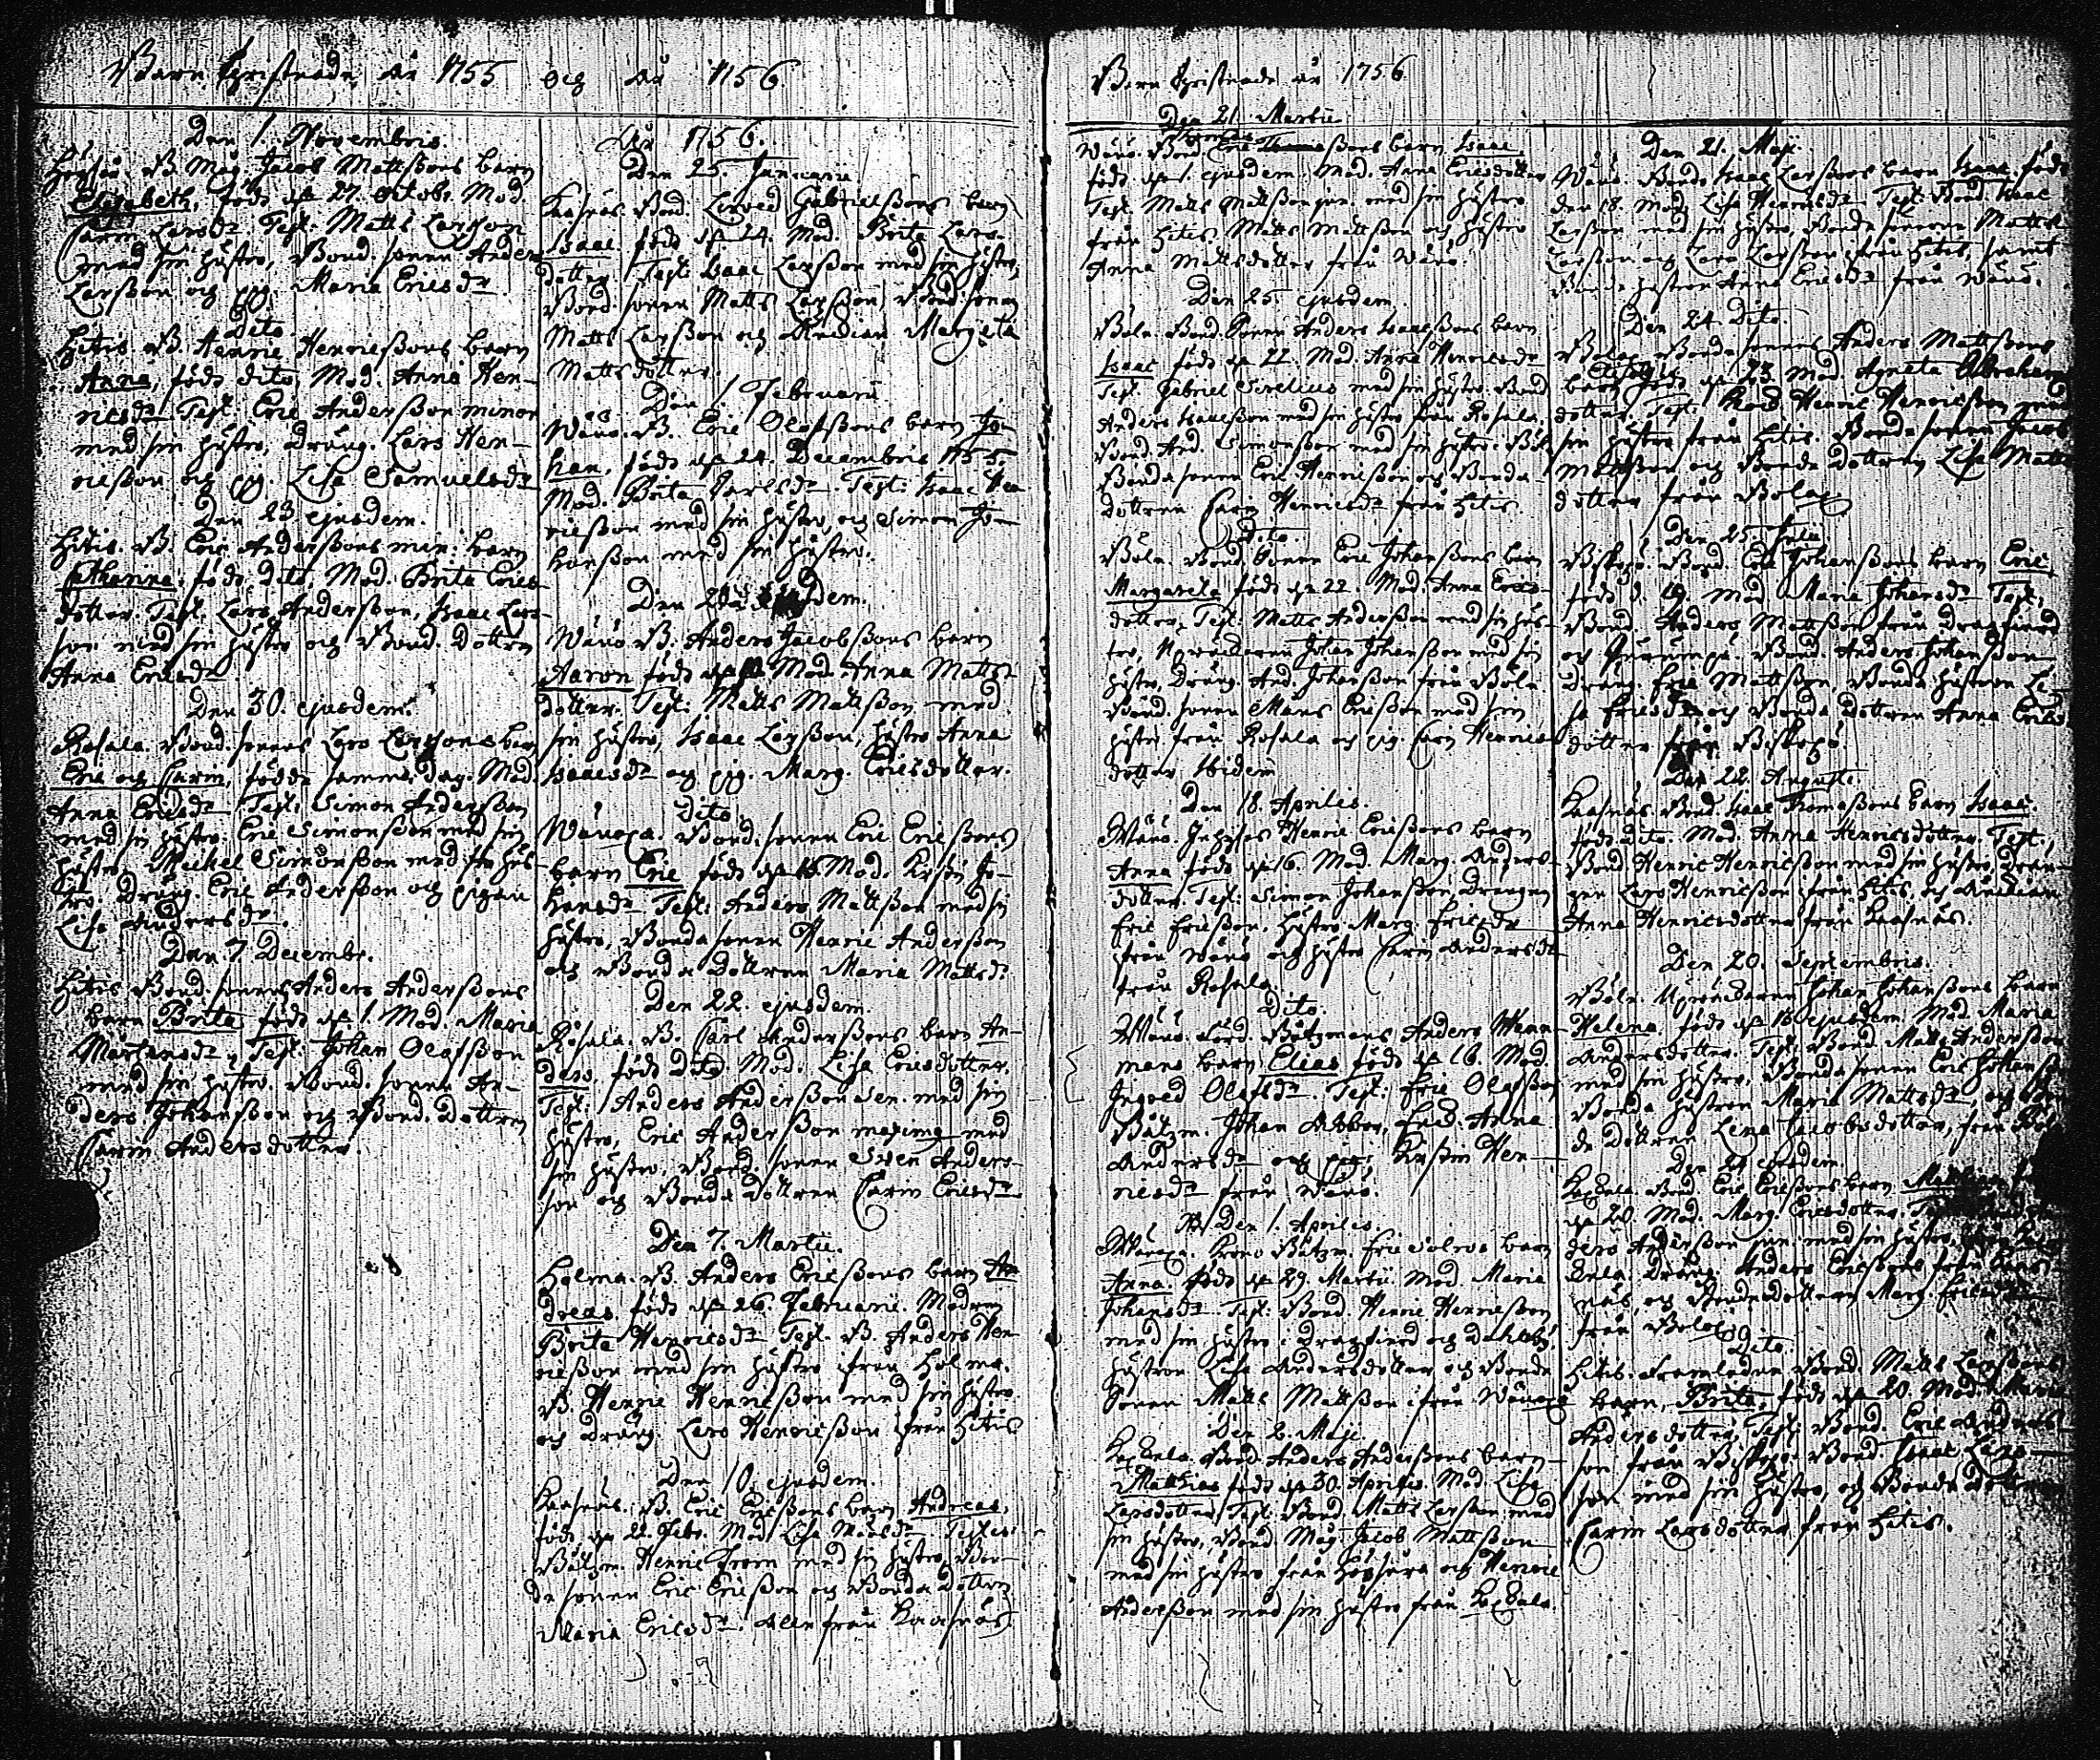 Barn Christnade År 1755 och År 1756.
Den 1. Novembris.
Högsår. B. Måg. Jacob Mattßons barn
Elisabeth, född d. 27. Octobr. Mod.
Carin Larsdr. Test: Matts Larßon
med sin hustro, Bond. sonen Anders
Larßon och pig. Maria Ericsdr
Dito.
Hitis B. Henric Henricßons barn
Anna, född dito, Mod. Anna Hen-
ricsdr Test. Eric Anderßon minor
med sin hustro, Dräng. Lars Hen-
ricßon och pig. Lisa Samuelsdr
Den 23 ejusdem.
Hitis. B. Eric Anderßons min: barn
Catharina, född dito, Mod. Brita Erics-
dotter. Test. Lars Anderßon, Isaac Lars-
son med sin hustro och Bond. dottren
Anna Ericsdr
Den 30. ejusdem.
Rosala. Bond. sonens Lars Larßons barn
Eric och Carin, födde samma dag. Mod.
Anna Ericsdr Test: Simon Anderßon
med sin hustro. Eric Simonßon med sin
hustro. Michel Simonßon med sin hus-
tro. Dräng. Eric Anderßon och pigan
Lisa Andersdr.
Den 7. Decembr.
Hitis Bond. sonens Anders Anderßons
barn Brita född d. 1. Mod. Maria
Mårtensdr, Test: Johan Olofßon
med sin hustro. Bond. sonen An-
ders Johanßon och Bond. dottren
Carin Andersdotter.
År 1756.
Den 25. Januarii
Kasnäs. Bond. Leved Gabrielßons barn
Isaac född d. 24. Mod. Brita Lars-
dotter Test: Isaac Larßon med sin hustro,
Bond. sonen Matts Larßon, Bond. sonen
Matts Larßon och Margeta
Mattsdotter.
Den 1. Februarii
Wänö. B. Eric Olofßons barn Jo-
han, född d. 24. Decembris 1755
Mod. Brita Carlsdr. Test: Isaac Hen-
ricßon med sin hustro, och Simon Jo-
hanßon med sin hustro.
Den ejusdem.
Wänö B. Anders Jacobßons barn
Aaron född d. Mod. Anna Matts-
dotter. Test: Matts Mattßon med
sin hustro, Isaac Larßon, hustro Anna
Isaacsdr och pig. Marg. Ericsdotter.
Dito.
Wänoxa. Bond. sonen Eric Ericßons
barn Eric född d. 16. Mod. Kirstin Jo-
hansdr Test: Anders Mattßon med sin
hustro, Bonda sonen Henric Anderßon
och Bonda dottren Maria Mattsdr
Den 22. ejusdem.
Rosala. B. Carl Anderßons barn An-
ders, född dito. Mod. Lisa Ericsdotter.
Test: Anders Anderßon Sen. med sin
hustro, Eric Anderßon med
sin hustro, Bond. sonen Sven Anders-
son och Bonda dottren Carin Ericsdr
Den 7. Martii.
Holma. B. Anders Ericßons barn An-
dreas född d. 26. Februarii. Modren
Brita Henricsdr Test. B. Anders Hen-
ricßon med sin hustro ifrån Holma.
B. Henric Henricßon med sin hustro
och dräng. Lars Henricßon ifrån Hitis
Den 10. ejusdem.
Kasnäs. B. Eric Ericßons barn Andreas,
född d. 22. Febr. Mod. Lisa Månsdr Testes:
Båtzm. Henric From med sin hustro, Bon-
de sonen Eric Ericßon och Bonda dottren
Maria Ericsdr. Alla från Kasnäs.
Barn Christnade År 1756
Den 21. Martii
Wänö. Bond. Eric Thomasßons barn Isaac
född d. 1. ejusdem. Mod. Anna Ericsdotter
Test. Matts Mattßon jun. med sin hustro
från Hitis. Matts Mattßon och hustro
Anna Mattsdotter från Wänö.
Den 25. ejusdem.
Böle. Bond. Sonen Anders Isaacßons barn
Isaac född d. 22. Mod. Anna Henricsdr
Test. Gabriel Sirelius med sin hustro. Bond.
Anders Isaacßon med sin hustro från Rosala.
Bond. And. Simonßon med sin hustro. Böle
Bonda sonen Eric Henricßon och Bonda-
dottren Carin Henricsdr från Hitis.
Dito.
Böle. Bond. Sonen Eric Johanßons barn
Margareta född d. 22. Mod. Anna Erics-
dotter. Test. Matts Anderßon med sin hus-
tro, Johan Johanßon med sin
hustro, Dräng. And. Johanßon från Böle
Bond. sonen Måns Ericßon med sin
hustro från Rosala och pig. Carin Henrics-
dotter Ibidem
Den 18. Aprilis.
Wänö. Henric Ericßons barn
Anna född d. 16. Mod. Marg. Anders-
dotter. Test: Simon Johanßon, Drängen
Eric Ericßon, hustro Marg. Ericsdr
från Wänö och hustro Carin Andersdr
från Rosala.
Dito.
Wänö. Båtzmans Anders Wenn-
mans barn Elias född d. 16. Mod.
Ingred Olofsdr. Test: Eric Olofßon
Båtzm. Johan Abbor, Anna
Andersdr och pig. Kirstin Hen-
ricsdr från Wänö.
Den 1. Aprilis.
Wänoxa. Krono Båtzm. Eric Solros barn
Anna, född d. 29. Martii Mod. Maria
Johansdr Test: Bond. Henric Henricßon
med sin hustro i Dragfjerd och Dahlsby
hustron Lisa Andersdotter och Bonde
Sonen Matts Mattßon ifrån Wänoxa
Den 2. Maji.
Anders Anderßons barn
Matthias född d. 30. Aprilis. Mod. Lisa
Larsdotter, Test. Bond. Matts Larßon med
sin hustro, Bond. Måg Jacob Mattßon
med sin hustro från Högsåra och Henric
Anderßon med sin hustro från
Den 21. Maji.
Wänö. Bonds Isaac Larßons barn Isaac född
den 18. Mod. Lisa Henricsdr Test. Bond. Isaac
Larßon med sin hustro, Bonda sönerna Matts
Larßon och Lars Larßon från Hitis, samt
Bonde hustron Anna Ericsdr från Wänö.
Den 24. Dito.
Bolax. Bonda sonens Anders Mattßons
barn född d. 23 Mod. Agneta Abrahams
dotter. Test: Bond. Henric Henricßon med
sin hustro från Hitis. Bonda sonen Jacob
Mattßon och Bonda dottren Lisa Matts
dotter från Bolax
Den 25. Julii
Biskopsö. Bond. Eric Johanßons barn Eric,
född d. 19. Mod. Maria Johansdr Test.
Bond. Anders Mattßon från Dragfjerd
och Purunpä. Bond. Anders Johanßon
Dräng. Eric Mattßon, Bonda hustron Li-
sa Ericsdr och Bonda dottren Anna Erics-
dotter från Biskopsö.
Den 22. Augusti
Kasnäs Bond. Isaac Thomaßons barn Isaac,
född dito. Mod. Anna Henricsdotter. Test.
Bond Henric Henricßon med sin hustro, Drän-
gen Lars Henricßon från Hitis, och
Anna Henricsdotter från Kasnäs.
Den 20. Septembris.
Böle. Johan Johanßons barn
Helena, född d. 18 ejusdem. Mod. Maria
Andersdotter. Test. Bond Matts Anderßon
med sin hustro, Bonda sonen Eric Johanßon
Bonda hustron Maria Mattsdr, och Bon-
de dottren Lena Jacobsdotter, från Böle
Den 24 ejusdem
Bond. Eric Ericßons barn
d. 20. Mod. Marg. Ericsdotter.
ders Anderßon jun. med sin hustro,
Dräng. Anders Ericßons från Kas-
näs och Bondedottren Marg. Ericsdr
från Bolax
Dito
Hitis. Bond. Matts Larßons
barn, Brita, född d. 20. Mod. Maria
Andersdotter, Test. Bond. Eric Anders-
son från Biskopsö. Bond. Isaac Lars-
son med sin hustro, och Bonde dottren
Carin Larsdotter från Hitis.